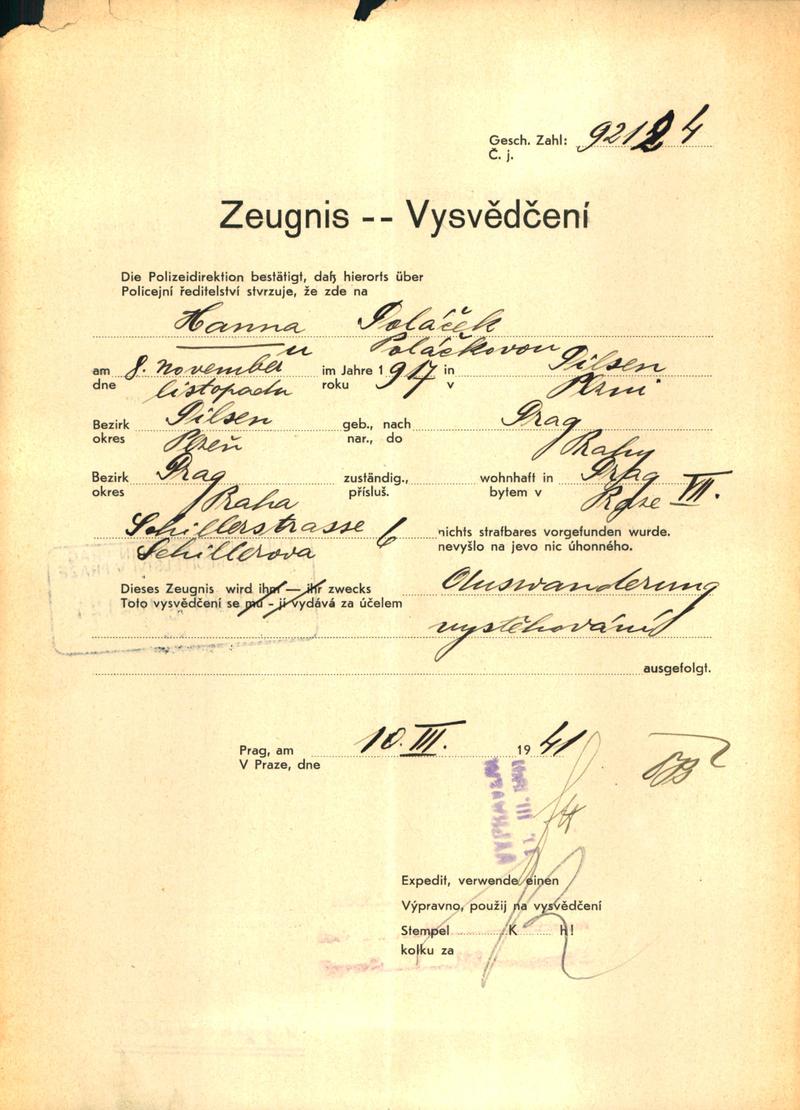 Gesch. Zahl: 92124
Č. j.
Zeugnis -- Vysvědčení
Die Polizeidirektion bestätigt, daß hierorts über
Policejní ředitelství stvrzuje, že zde na
Hanna Poláček
Poláčkovou
am 8. november im Jahre 1917 in Pilsen
dne listopadu roku v Plzni
Bezirk Pilsen geb., nach Prag
okres Plzeň nar., do Prahy
Bezirk Prag zuständig., wohnhaft in Prag
okres Praha přísluš. bytem v Praze VII.
Schillerstrasse 6 nichts strafbares vorgefunden wurde.
Schillerova nevyšlo na jevo nic úhonného.
Dieses Zeugnis wird ihm — ihr zwecks Auswanderung
Toto vysvědčení se mu - jí vydává za účelem
vystěhování
ausgefolgt.
Prag, am 10. III. 1941
V Praze, dne
VYPRAVENO
11. III. 1941
Expedit, verwende einen
Výpravno, použij na vysvědčení
Stempel K h!
kolku za